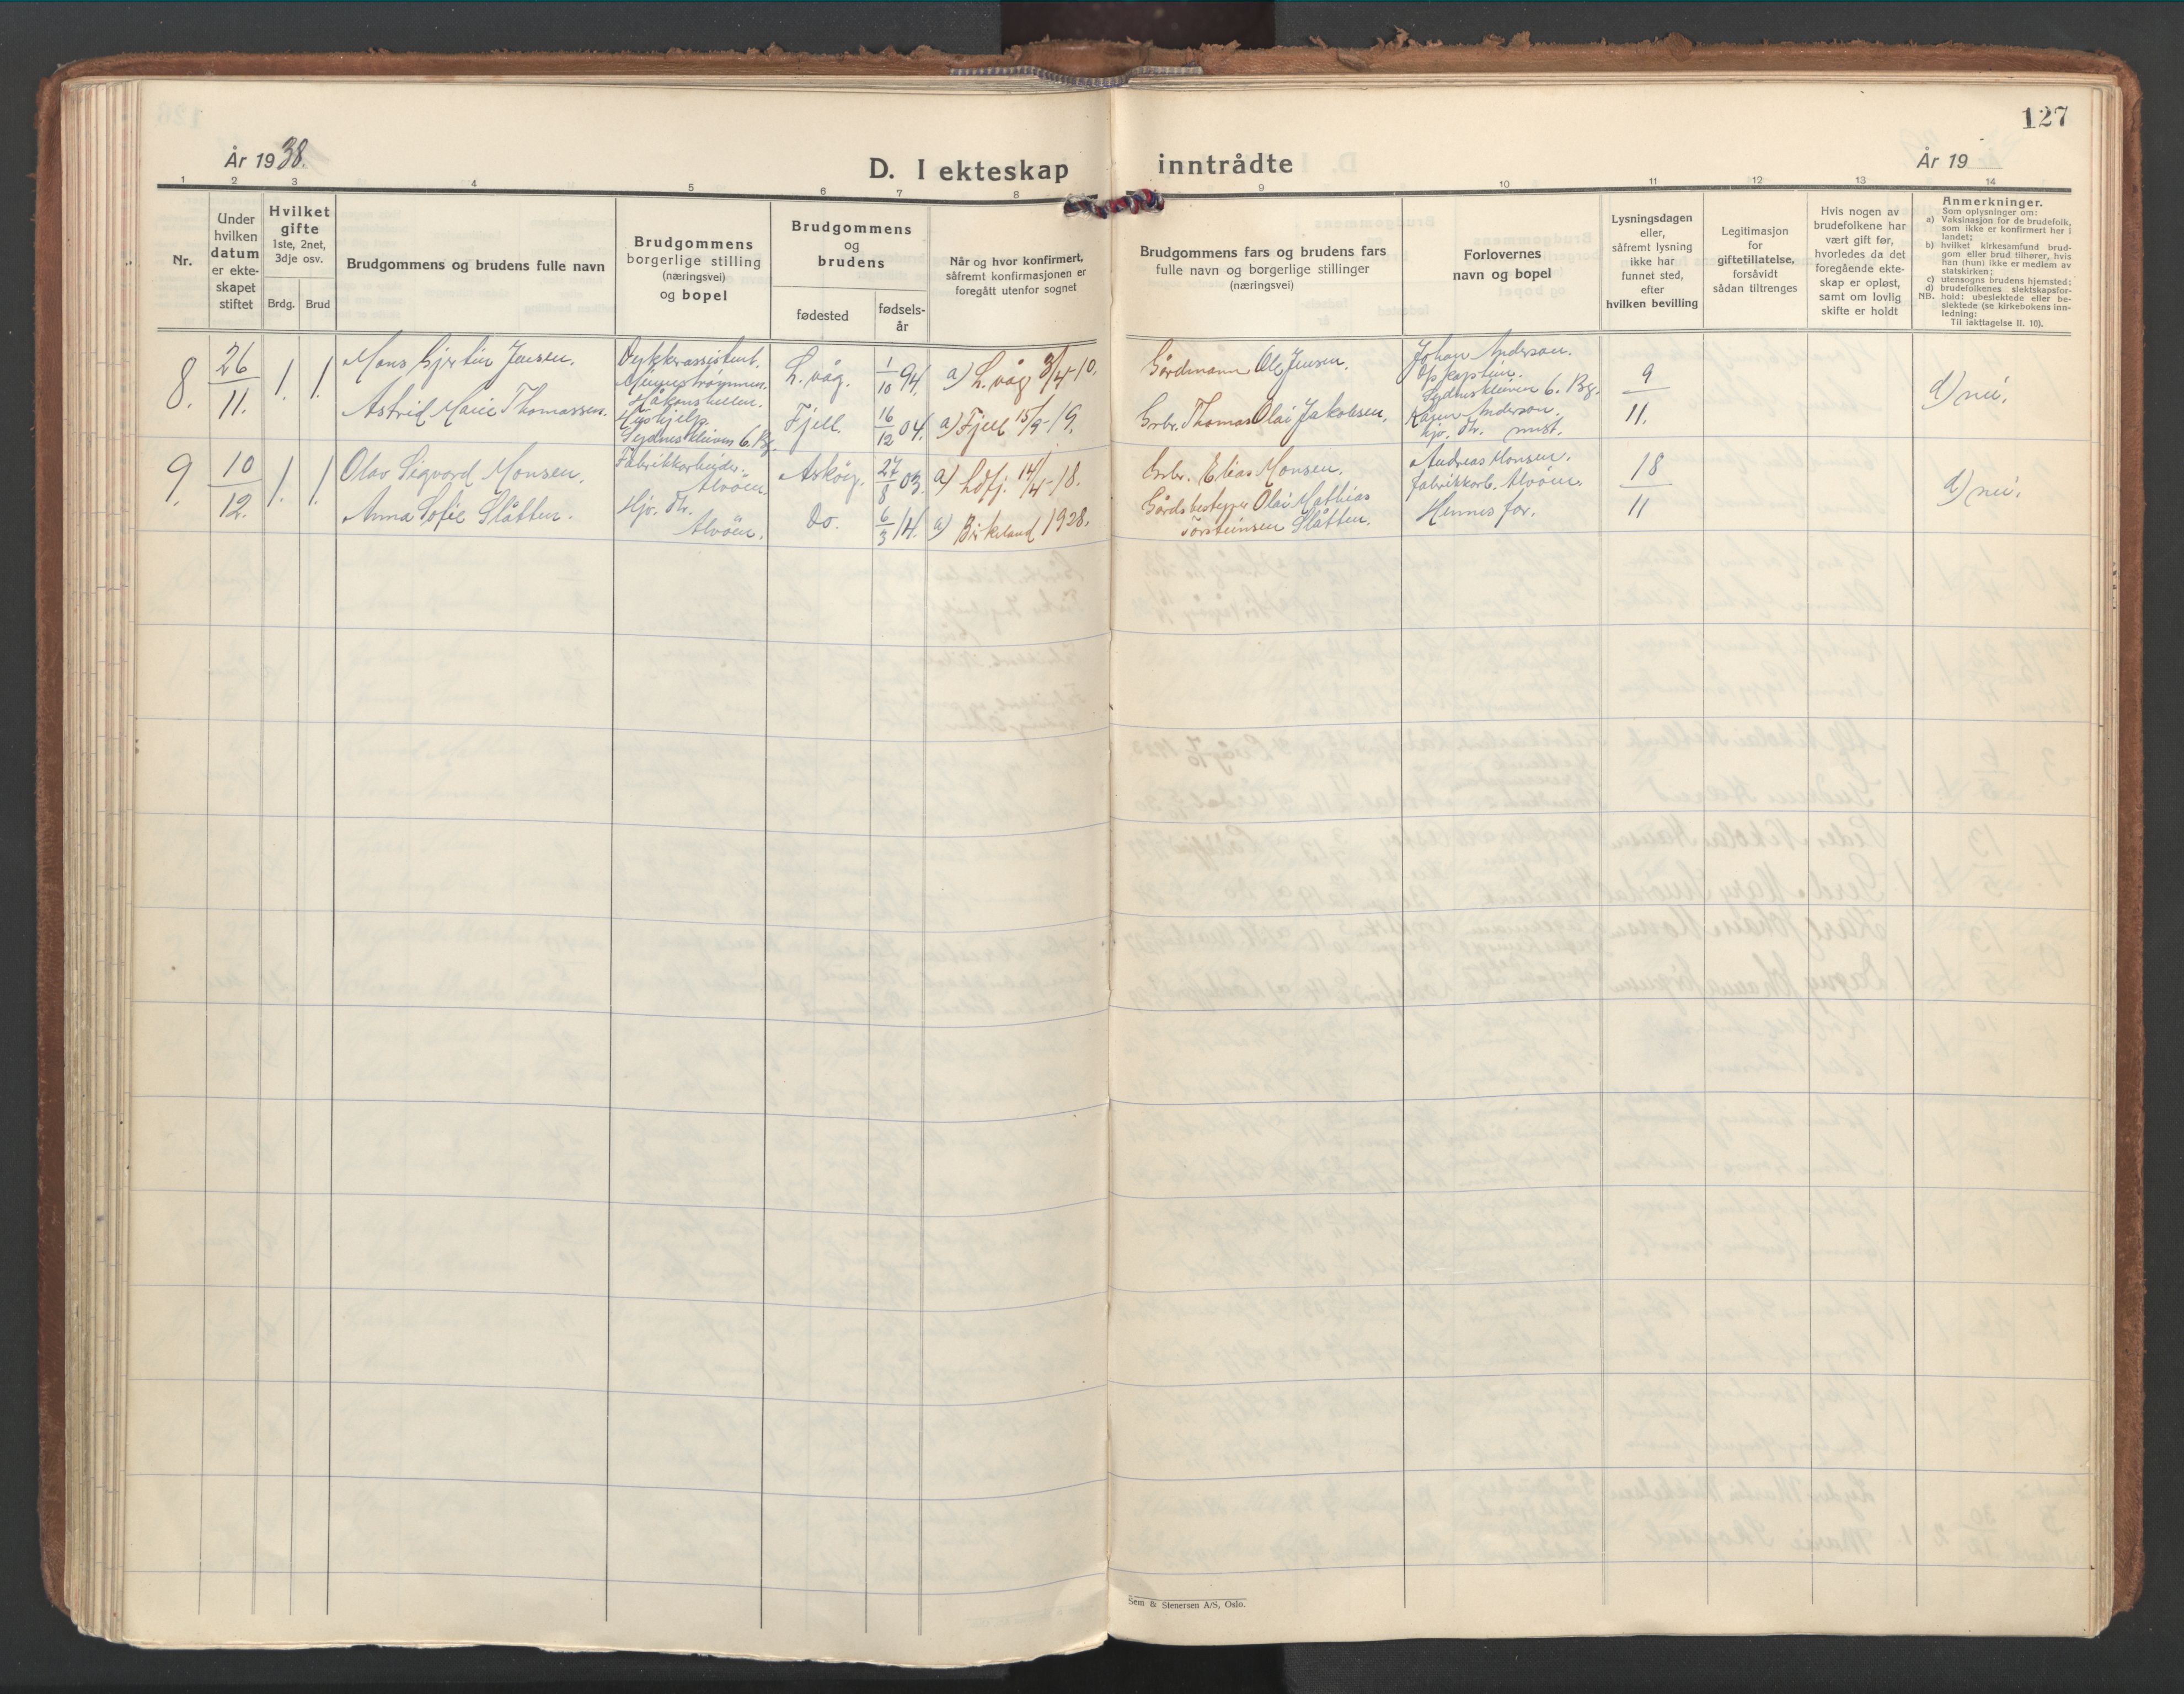 127
År 1938.
D. I ekteskap inntrådte
År 19
1 2 3 4 5 6 7 8 9 10 11 12 13 14
Nr.
Under
hvilken
datum
er ekte-
skapet
stiftet
Hvilket
gifte
1ste, 2net,
3dje osv.
Brdg. Brud
Brudgommens og brudens fulle navn
Brudgommens
borgerlige stilling
(næringsvei)
og bopel
Brudgommens
og
brudens
fødested
fødsels-
år
Når og hvor konfirmert,
såfremt konfirmasjonen er
foregått utenfor sognet
Brudgommens fars og brudens fars
fulle navn og borgerlige stillinger
(næringsvei)
Forlovernes
navn og bopel
Lysningsdagen
eller,
såfremt lysning
ikke har
funnet sted,
efter
hvilken bevilling
Legitimasjon
for
giftetillatelse,
forsåvidt
sådan tiltrenges
Hvis nogen av
brudefolkene har
vært gift før,
hvorledes da det
foregående ekte-
skap er opløst,
samt om lovlig
skifte er holdt
Anmerkninger.
Som oplysninger om:
a) Vaksinasjon for de brudefolk,
som ikke er konfirmert her i
landet;
b) hvilket kirkesamfund brud-
gom eller brud tilhører, hvis
han (hun) ikke er medlem av
statskirken;
c) utensogns brudens hjemsted;
d) brudefolkenes slektskapsfor-
NB. hold: ubeslektede eller be-
slektede (se kirkebokens inn-
ledning:
Til iakttagelse II. 10).
8. 26/11. 1. 1.
Mons Gjertin Jensen.
Dykkerassistent.
Håkonshellen.
L. våg. 1/10 94. a) L. våg 3/4-10.
Gårdmann Ole Jensen.
Johan Anderson.
Sydneskleiven 6. Bg.
9/11.
d) nei.
Astrid Marie Thomassen.
Hushjelp.
Sydneskleiven 6. Bg.
Fjell. 16/12 04. a) Fjell 15/9-19.
Grbr. Thomas Olai Jakobsen.
Karen Anderson.
hjv. str.
9. 10/12. 1. 1.
Olav Sigvard Monsen.
Fabrikkarbeider.
Alvøen.
Askøy. 27/8 03. a) Ldfj. 14/4-18.
Grbr. Elias Monsen.
Andreas Monsen.
fabrikkarb. Alvøen.
18/11
d) nei.
Anna Sofie Slåtten.
Hjv. str.
Alvøen.
Do. 6/3 14. a) Birkeland 1928.
Gårdsbestyrer Olai Mathias
Torsteinsen Slåtten.
Hennes far.
Sem & Stenersen A/S, Oslo.